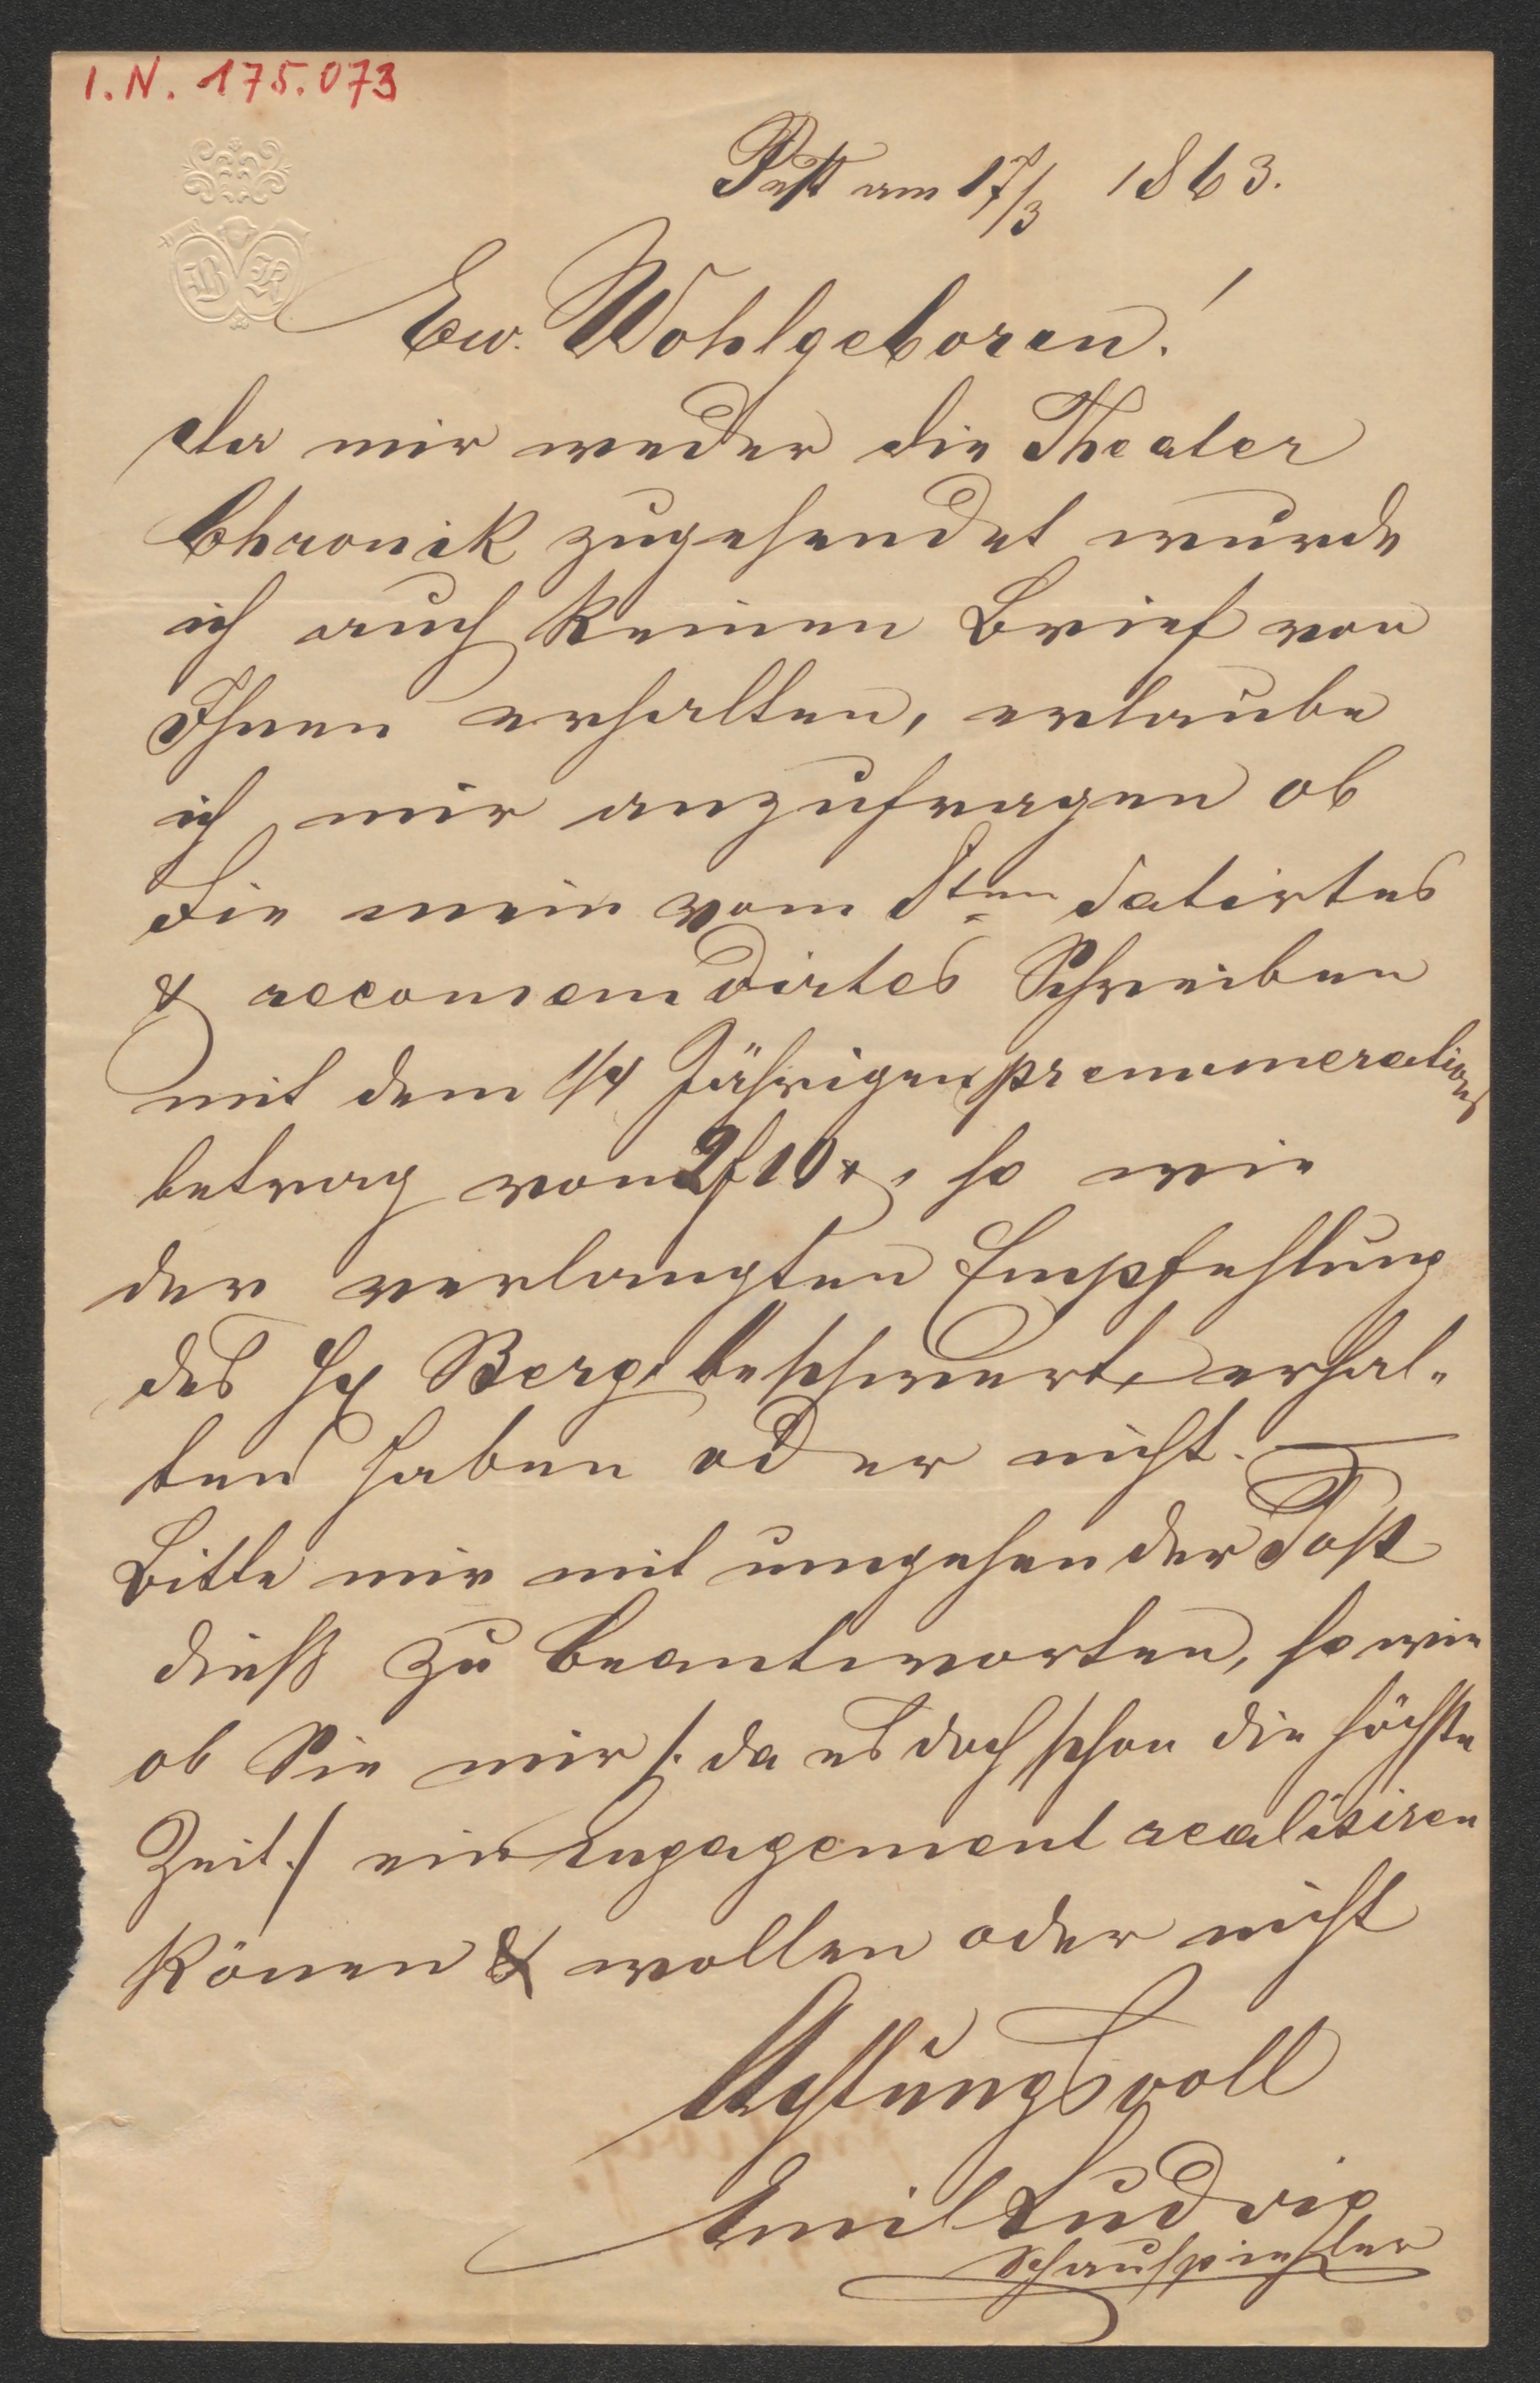 I.N. 175.073
Pest am 17/3 1863.
B K
Ew. Wohlgeboren!
da mir weder die Theater
Chronik zugesendet wurde
ich auch keinen Brief von
Ihnen erhalten, erlaube
ich mir anzufragen ob
Sie mein vom 8ten datirtes
& recomemdirtes Schreiben
mit dem 1/4 Jährigen prenumerations
betrag von 2f 10x, so wie
der verlangten Empfehlung
des H Berg beschwert erhal-
ten haben oder nicht. —
Bitte mir mit umgehender Post
dieß zu beantworten, so wie
ob Sie mir /. da es doch schon die höchste
Zeit ./ ein Engagement realisiren
können & wollen oder nicht
Achtungsvoll
Emil Ludwig
Schauspiehler